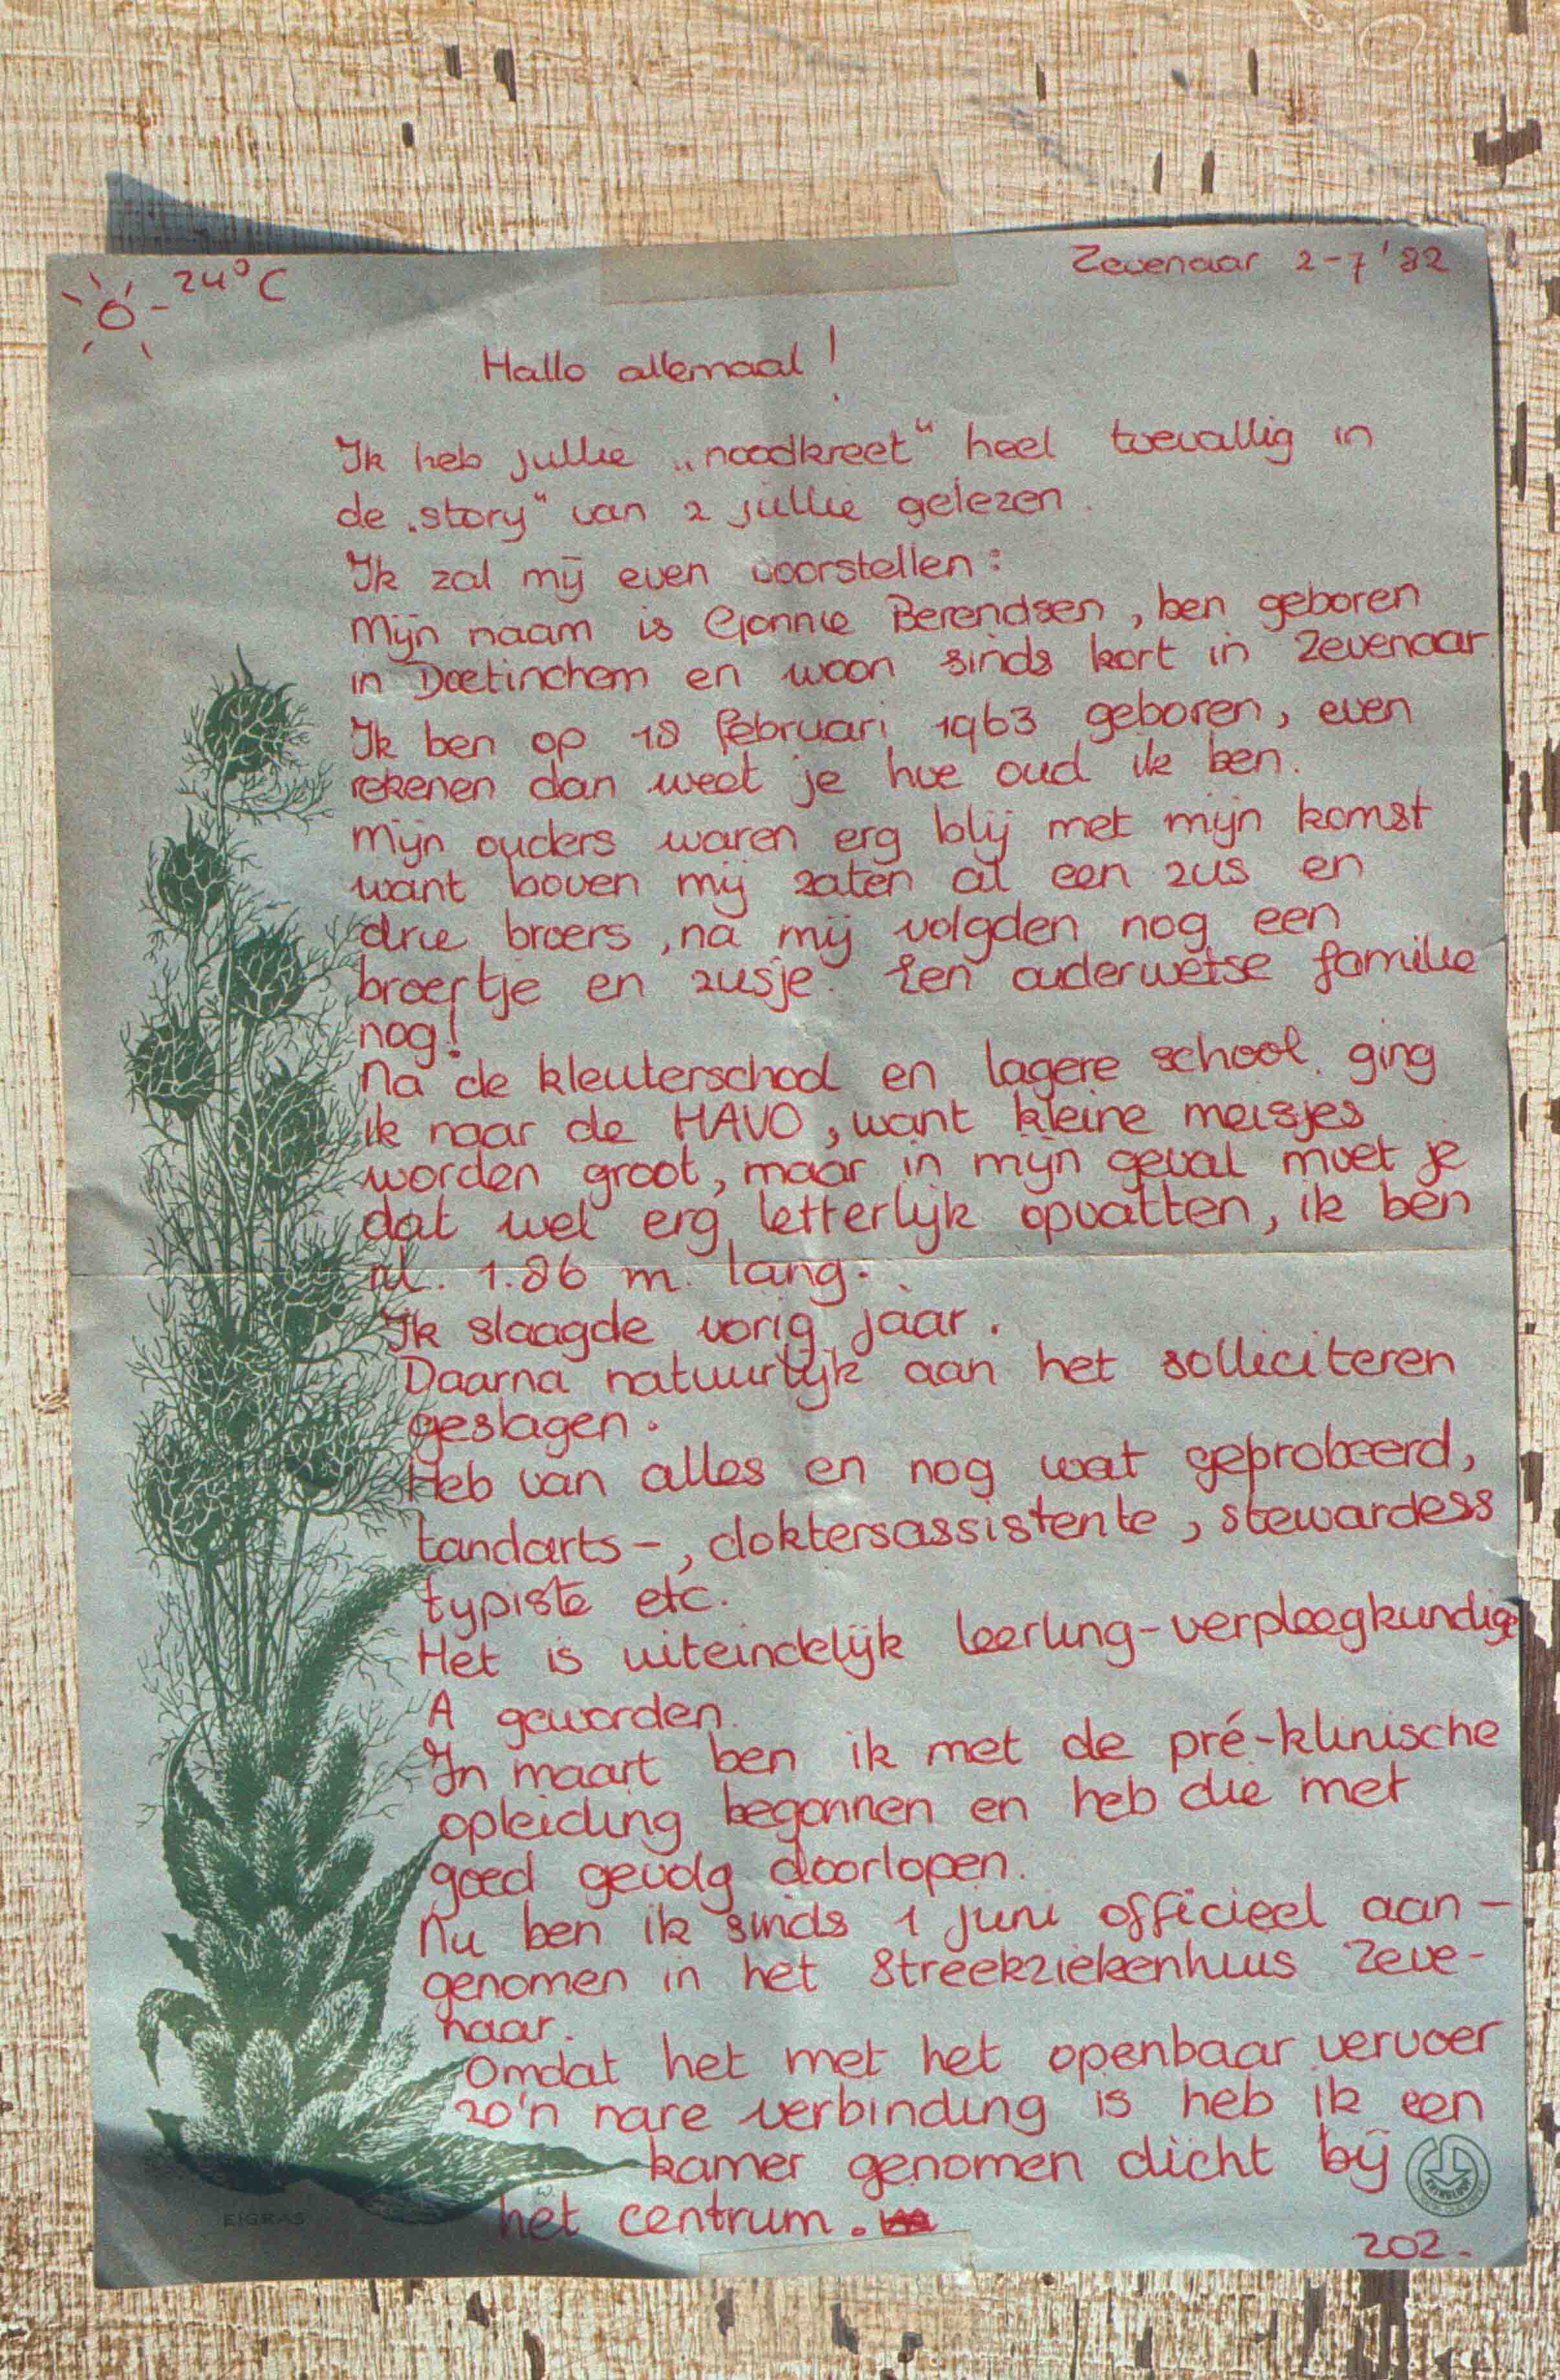 24°C
Zevenaar 2-7'82
Hallo allemaal!
Ik heb jullie „noodkreet" heel toevallig in
de „story" van 2 jullie gelezen.
Ik zal mij even voorstellen:
Mijn naam is Gonnie Berendsen, ben geboren
in Doetinchem en woon sinds kort in Zevenaar.
Ik ben op 18 februari 1963 geboren, even
rekenen dan weet je hoe oud ik ben.
Mijn ouders waren erg blij met mijn komst
want boven mij zaten al een zus en
drie broers, na mij volgden nog een
broertje en zusje. Een ouderwetse familie
nog!
Na de kleuterschool en lagere school ging
ik naar de HAVO, want kleine meisjes
worden groot, maar in mijn geval moet je
dat wel erg letterlijk opvatten, ik ben
nl. 1.86 m. lang.
Ik slaagde vorig jaar.
Daarna natuurlijk aan het solliciteren
geslagen.
Heb van alles en nog wat geprobeerd,
tandarts-, doktersassistente, stewardess
typiste etc.
Het is uiteindelijk leerling-verpleegkundige
A geworden.
In maart ben ik met de pré-klinische
opleiding begonnen en heb die met
goed gevolg doorlopen.
Nu ben ik sinds 1 juni officieel aan-
genomen in het Streekziekenhuis Zeve-
naar.
Omdat het met het openbaar vervoer
zo'n rare verbinding is heb ik een
kamer genomen dicht bij
het centrum.
EIGRAS
202-